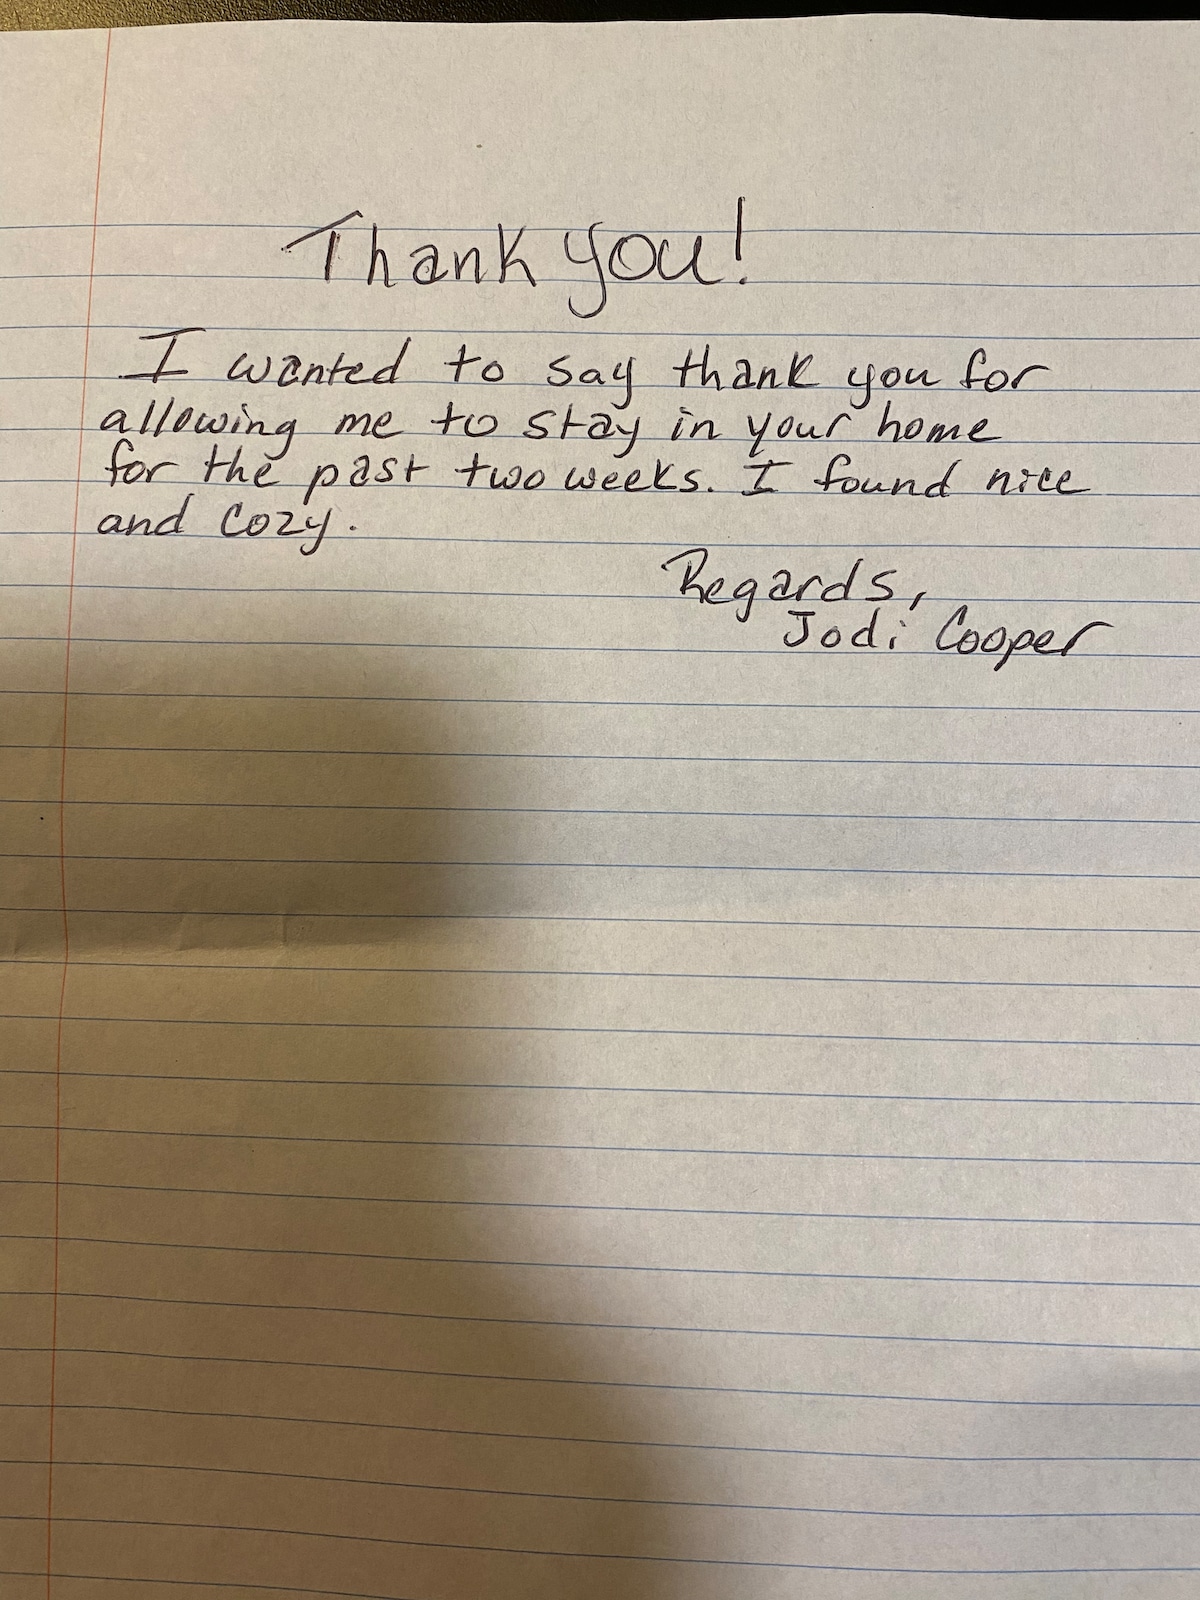 Thank you!
I wanted to say thank you for
allowing me to stay in your home
for the past two weeks. I found nice
and cozy.
Regards,
Jodi Cooper